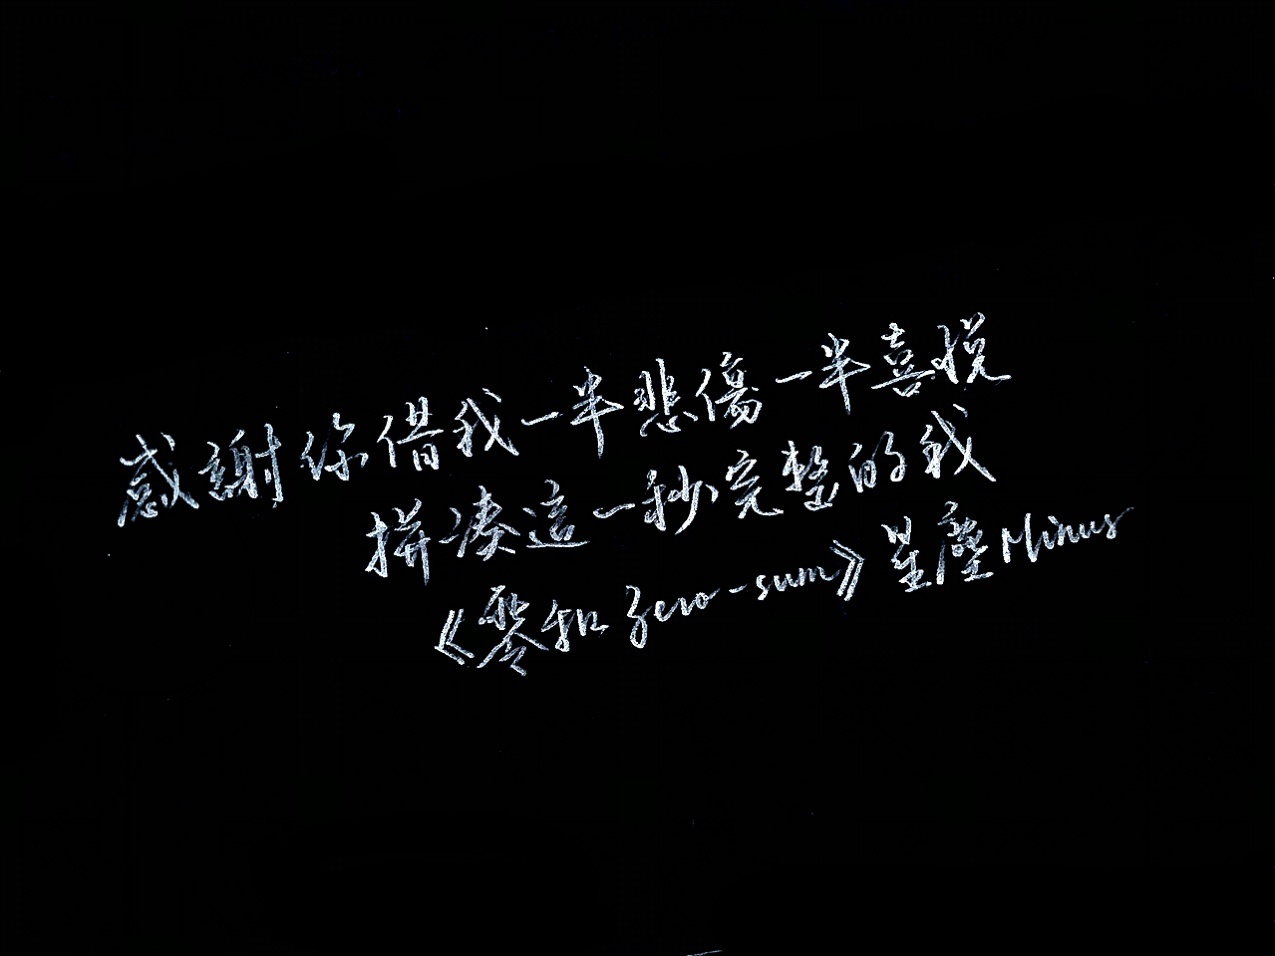 感謝你借我一半悲傷一半喜悅
拼湊這一秒完整的我
《零和 Zero-sum》星塵Minus